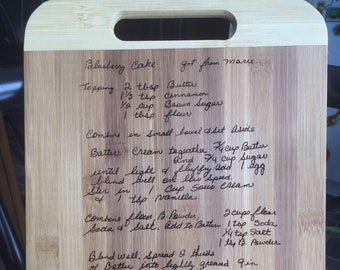 Blueberry Cake got from Marie
Topping 2 tbsp Butter
1½ tsp Cinnamon
½ cup Brown Sugar
1 tbsp flour
Combine in small bowl & set aside
Batter - Cream together ¾ cup Butter
and ¾ cup Sugar
until light & fluffy add 1 egg
blend well on low speed.
Stir in 1 Cup Sour Cream
& 1 tsp Vanilla
Combine flour, B Powder 2 cups flour
Soda & Salt. Add to Batter 1 tsp Soda
¼ tsp Salt
B. Powder
Blend well. Spread
of Batter into lightly greased 9 in